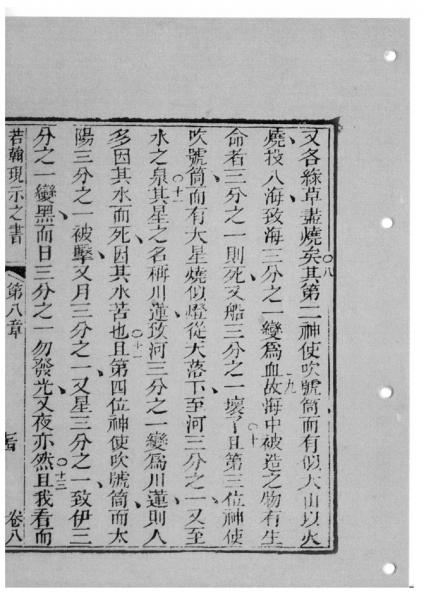 又各綠草盡燒矣○八其第二神使吹號筒而有似大山以火
燒投入海致海三分之一變爲血九故海中被造之物有生
命者三分之一則死又船三分之一壞了○十且第三位神使
吹號筒而有大星燒似燈從天落下至河三分之一又至
水之泉○十一其星之名稱川蓮致河三分之一變爲川蓮則人
多因其水而死因其水苦也○十二且第四位神使吹號筒而太
陽三分之一被擊又月三分之一又星三分之一致伊三
分之一變黑而日三分之一勿發光又夜亦然○十三且我看而
若翰現示之書 第八章 卷八